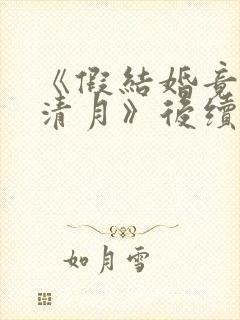 《假結婚竟
清月》後續
如月雪